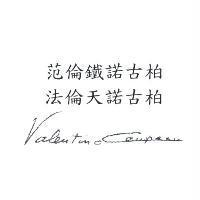 范倫鐵諾古柏
法倫天諾古柏
Valentino Coupeau